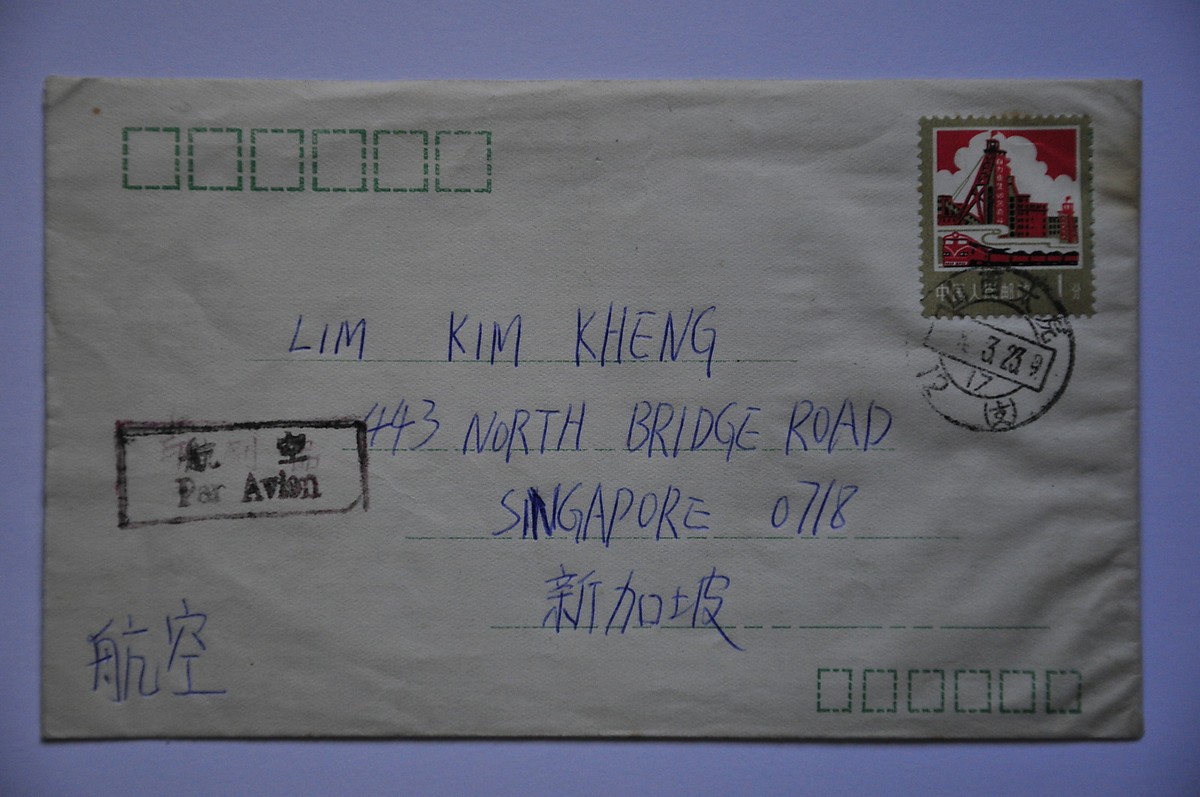 中国人民邮政 1分
LIM KIM KHENG
3.23.9
17
12 (支)
443 NORTH BRIDGE ROAD
航空
Par Avion
SINGAPORE 0718
新加坡
航空